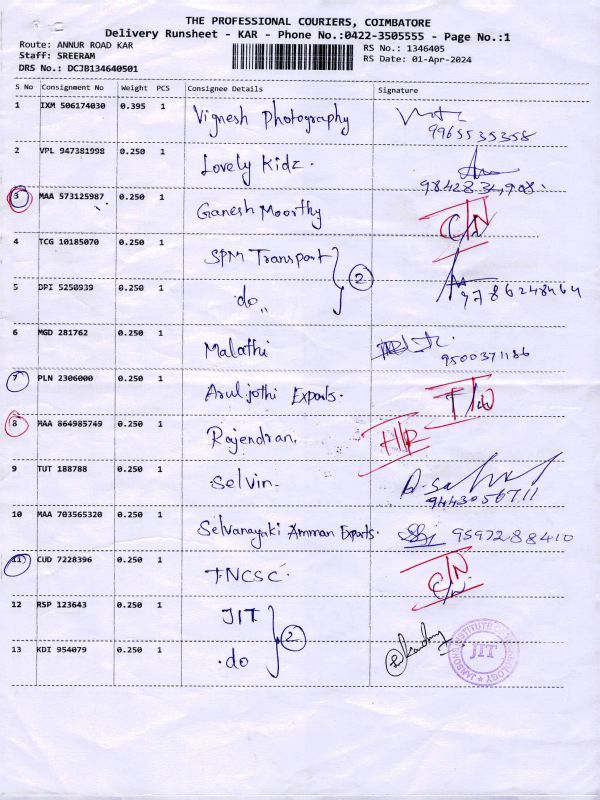 THE PROFESSIONAL COURIERS, COIMBATORE
Delivery Runsheet - KAR - Phone No.:0422-3505555 - Page No.:1
Route: ANNUR ROAD KAR
RS No.: 1346405
Staff: SREERAM
RS Date: 01-Apr-2024
DRS No.: DCJB134640501
S No Consignment No Weight PCS Consignee Details Signature
1 IXM 506174030 0.395 1 Vignesh Photography
9965535358
2 VPL 947381998 0.250 1 Lovely Kidz.
3 MAA 573125987 0.250 1 Ganesh Moorthy C/N
4 TCG 10185070 0.250 1 SPM Transport
2
5 DPI 5250939 0.250 1 do,,
9786248464
6 MGD 281762 0.250 1 Malathi
9500371186
7 PLN 2306000 0.250 1 Aruljothi Exports.
8 MAA 864985749 0.250 1 Rajendran.
9 TUT 188788 0.250 1 Selvin.
9443056711
10 MAA 703565320 0.250 1 Selvanayaki Amman Exports. 9597288410
11 CUD 7228396 0.250 1 TNCSC. C/N
12 RSP 123643 0.250 1 JIT
2
13 KDI 954079 0.250 1 .do
JANSONS INSTITUTE OF TECHNOLOGY
JIT